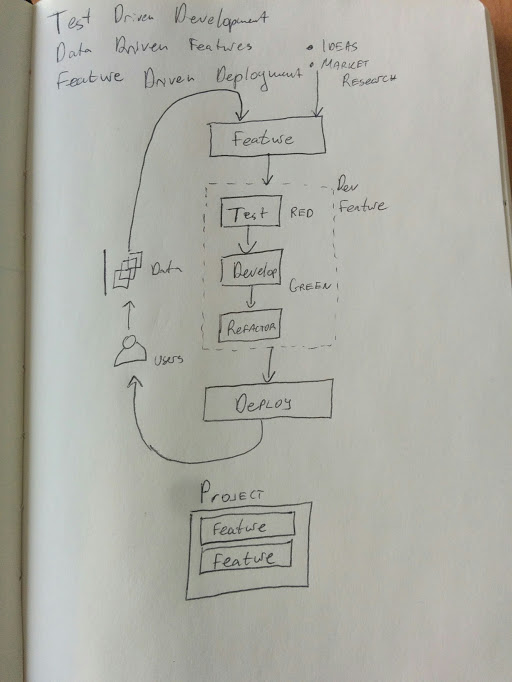 Test Driven Development
Data Driven Features
Feature Driven Deployment
• IDEAS
• MARKET
RESEARCH
Feature
Dev
Feature
Test
RED
Develop
GREEN
REFACTOR
Data
Users
DEPLOY
PROJECT
Feature
Feature